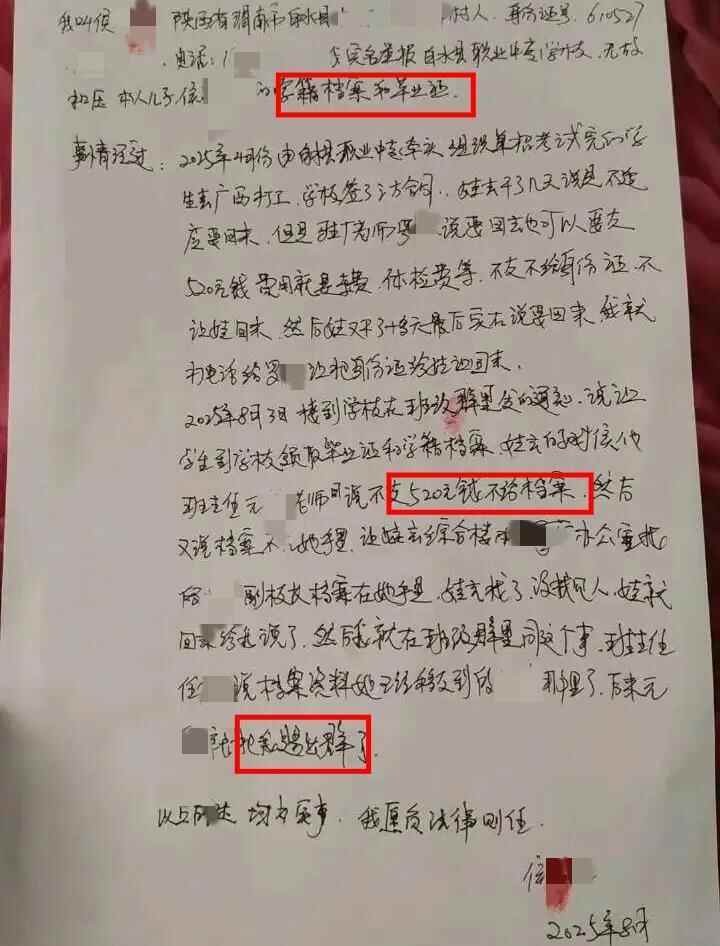 我叫侯 陕西省渭南市白水县 村人，身份证号，610527
电话：1 实名举报白水县职业中专学校，无故
扣压本人儿子侯 的学籍档案和毕业证。
事情经过：2025年4月份由白水县职业中专牵头组织单招考试完的学
生去广西打工，学校签了三方合同，娃去干了几天说是不适
应要回来，但是驻厂老师 说要回去也可以要交
520元钱费用就是车费、体检费等，不交不给身份证，不
让娃回来，然后娃又干了十多天最后实在说要回来我就
打电话给 让把身份证给娃让回来。
2025年8月3日接到学校在班级群里发的通知，说让
学生到学校领取毕业证和学籍档案，娃去的时候他
班主任元 老师说不交520元钱不给档案，然后
又说档案不 她手里，让娃去综合楼 办公室找
副校长档案在她手里，娃去找了，没找见人，娃就
回来给我说了，然后我就在班级群里问这个事，班主任
任 说档案资料她已经移交到 那里了，后来元
把我踢出群了。
以上 均为实事，我愿负法律则任。
侯
2025年8月